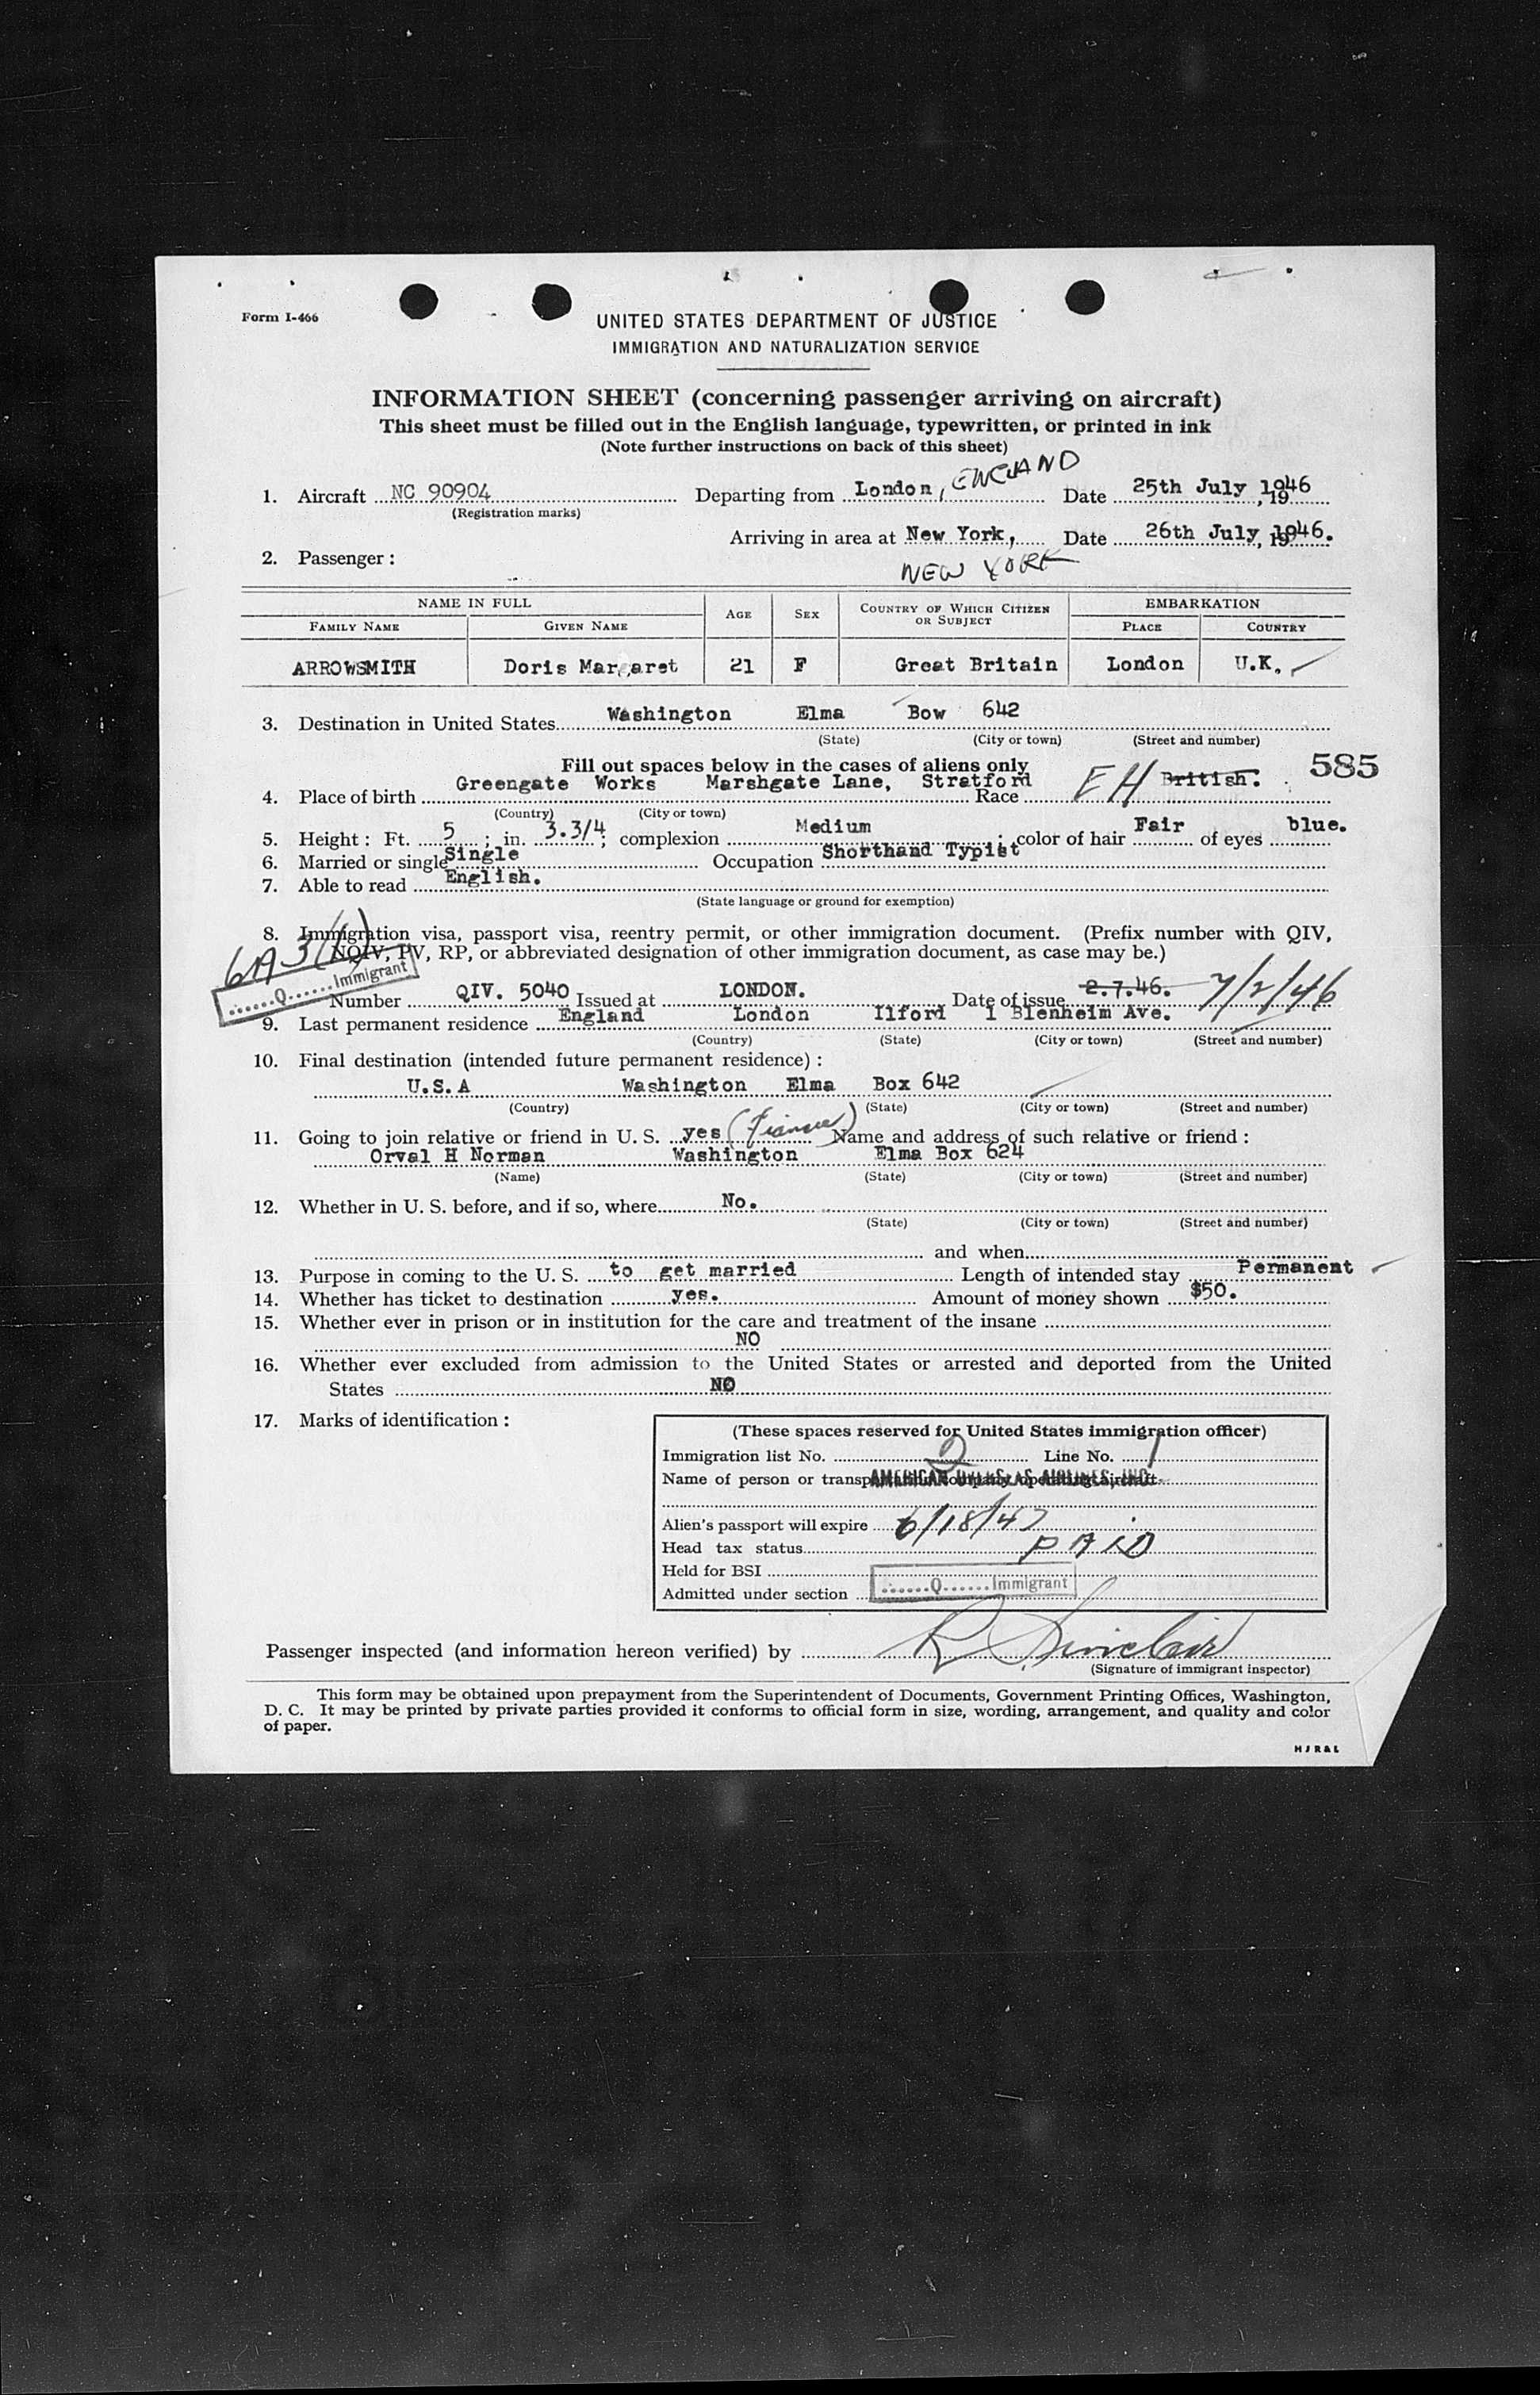 Form I-466
UNITED STATES DEPARTMENT OF JUSTICE
IMMIGRATION AND NATURALIZATION SERVICE
INFORMATION SHEET (concerning passenger arriving on aircraft)
This sheet must be filled out in the English language, typewritten, or printed in ink
(Note further instructions on back of this sheet)
1. Aircraft NC 90904 Departing from London, ENGLAND Date 25th July, 1946
(Registration marks)
Arriving in area at New York, Date 26th July, 1946.
NEW YORK
2. Passenger:
NAME IN FULL AGE SEX COUNTRY OF WHICH CITIZEN OR SUBJECT EMBARKATION
FAMILY NAME GIVEN NAME PLACE COUNTRY
ARROWSMITH Doris Margaret 21 F Great Britain London U.K.
3. Destination in United States Washington Elma Bow 642
(State) (City or town) (Street and number)
Fill out spaces below in the cases of aliens only 585
4. Place of birth Greengate Works Marshgate Lane, Stratford Race EH British.
(Country) (City or town)
5. Height: Ft. 5; in. 3.3/4; complexion Medium; color of hair Fair of eyes blue.
6. Married or single Single Occupation Shorthand Typist
7. Able to read English.
(State language or ground for exemption)
8. Immigration visa, passport visa, reentry permit, or other immigration document. (Prefix number with QIV,
NQIV, PV, RP, or abbreviated designation of other immigration document, as case may be.)
......Q......Immigrant
Number QIV. 5040 Issued at LONDON. Date of issue 2.7.46. 7/2/46
9. Last permanent residence England London Ilford 1 Blenheim Ave.
(Country) (State) (City or town) (Street and number)
10. Final destination (intended future permanent residence):
U.S.A Washington Elma Box 642
(Country) (State) (City or town) (Street and number)
11. Going to join relative or friend in U. S. yes (Fiance) Name and address of such relative or friend:
Orval H Norman Washington Elma Box 624
(Name) (State) (City or town) (Street and number)
12. Whether in U. S. before, and if so, where No.
(State) (City or town) (Street and number)
and when
13. Purpose in coming to the U. S. to get married Length of intended stay Permanent
14. Whether has ticket to destination yes. Amount of money shown $50.
15. Whether ever in prison or in institution for the care and treatment of the insane
NO
16. Whether ever excluded from admission to the United States or arrested and deported from the United
States NO
17. Marks of identification:
(These spaces reserved for United States immigration officer)
Immigration list No. 2 Line No. 1
Name of person or transportation company operating aircraft
AMERICAN OVERSEAS AIRLINES, INC.
Alien's passport will expire 6/18/47
Head tax status PAID
Held for BSI
Admitted under section ......Q......Immigrant
Passenger inspected (and information hereon verified) by R Sinclair
(Signature of immigrant inspector)
This form may be obtained upon prepayment from the Superintendent of Documents, Government Printing Offices, Washington,
D. C. It may be printed by private parties provided it conforms to official form in size, wording, arrangement, and quality and color
of paper.
HJR&L